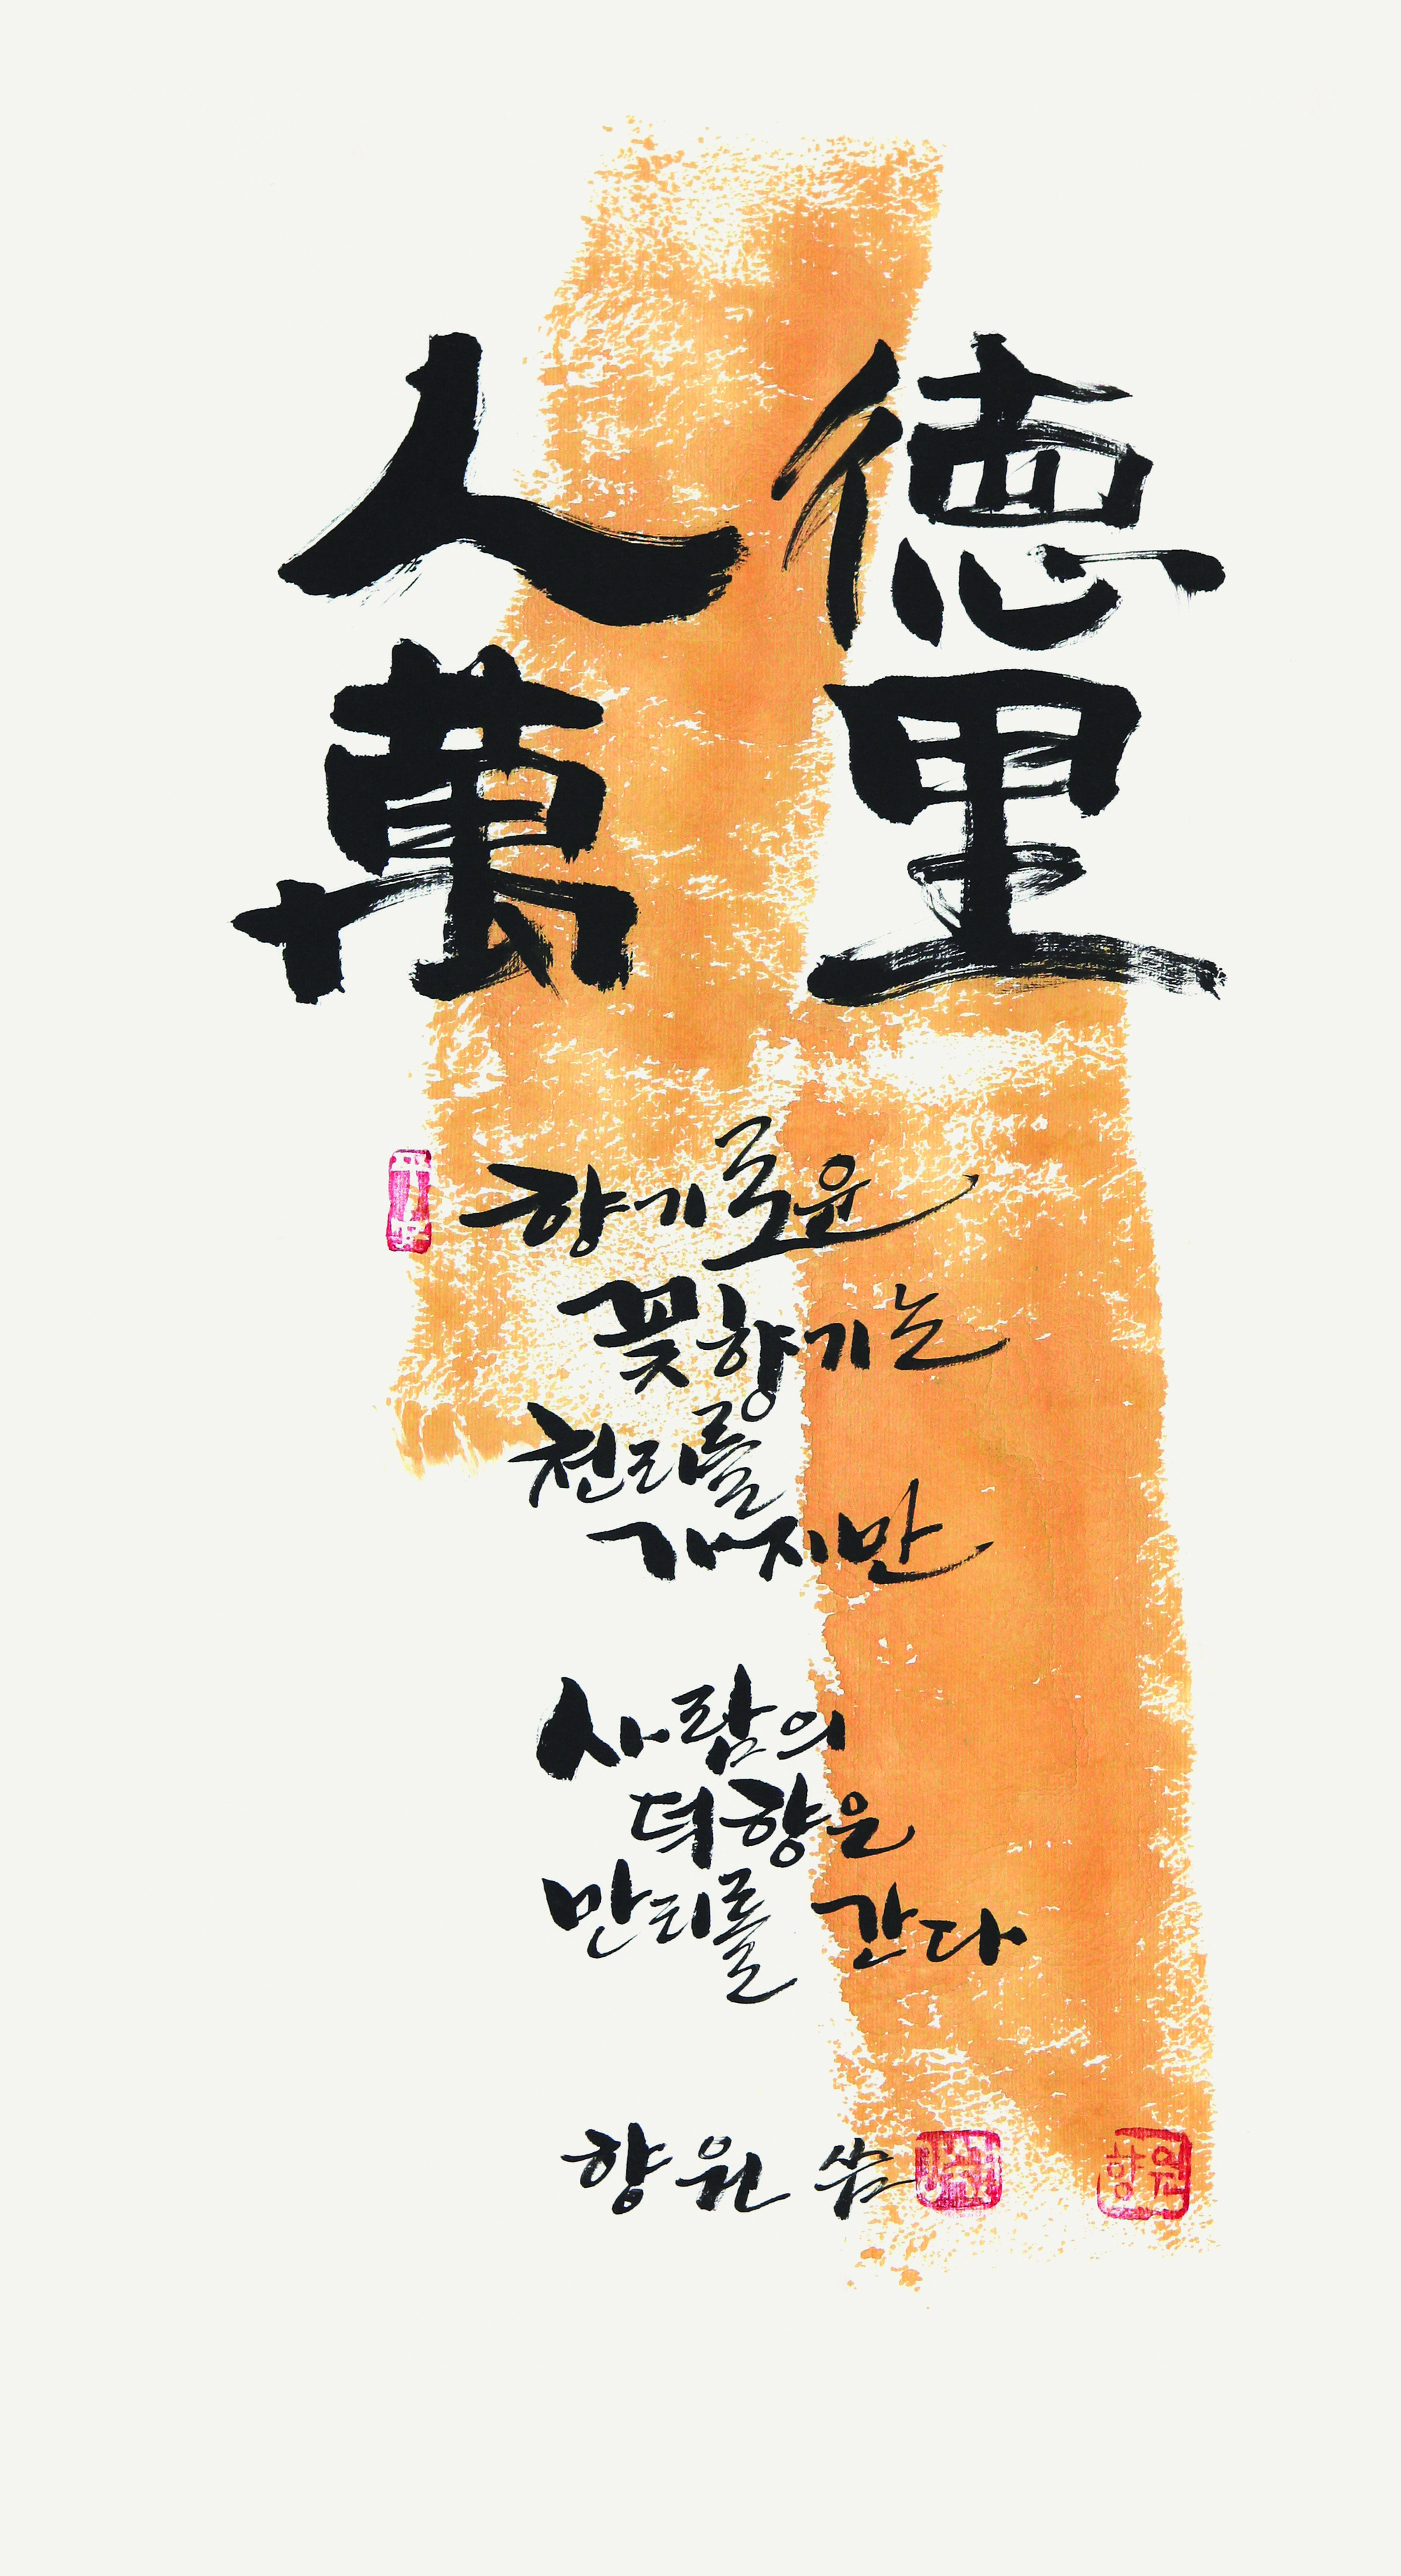 人德
萬里
향기로운
꽃향기는
천리를
가지만
사람의
덕향은
만리를 간다
향원 씀
향원